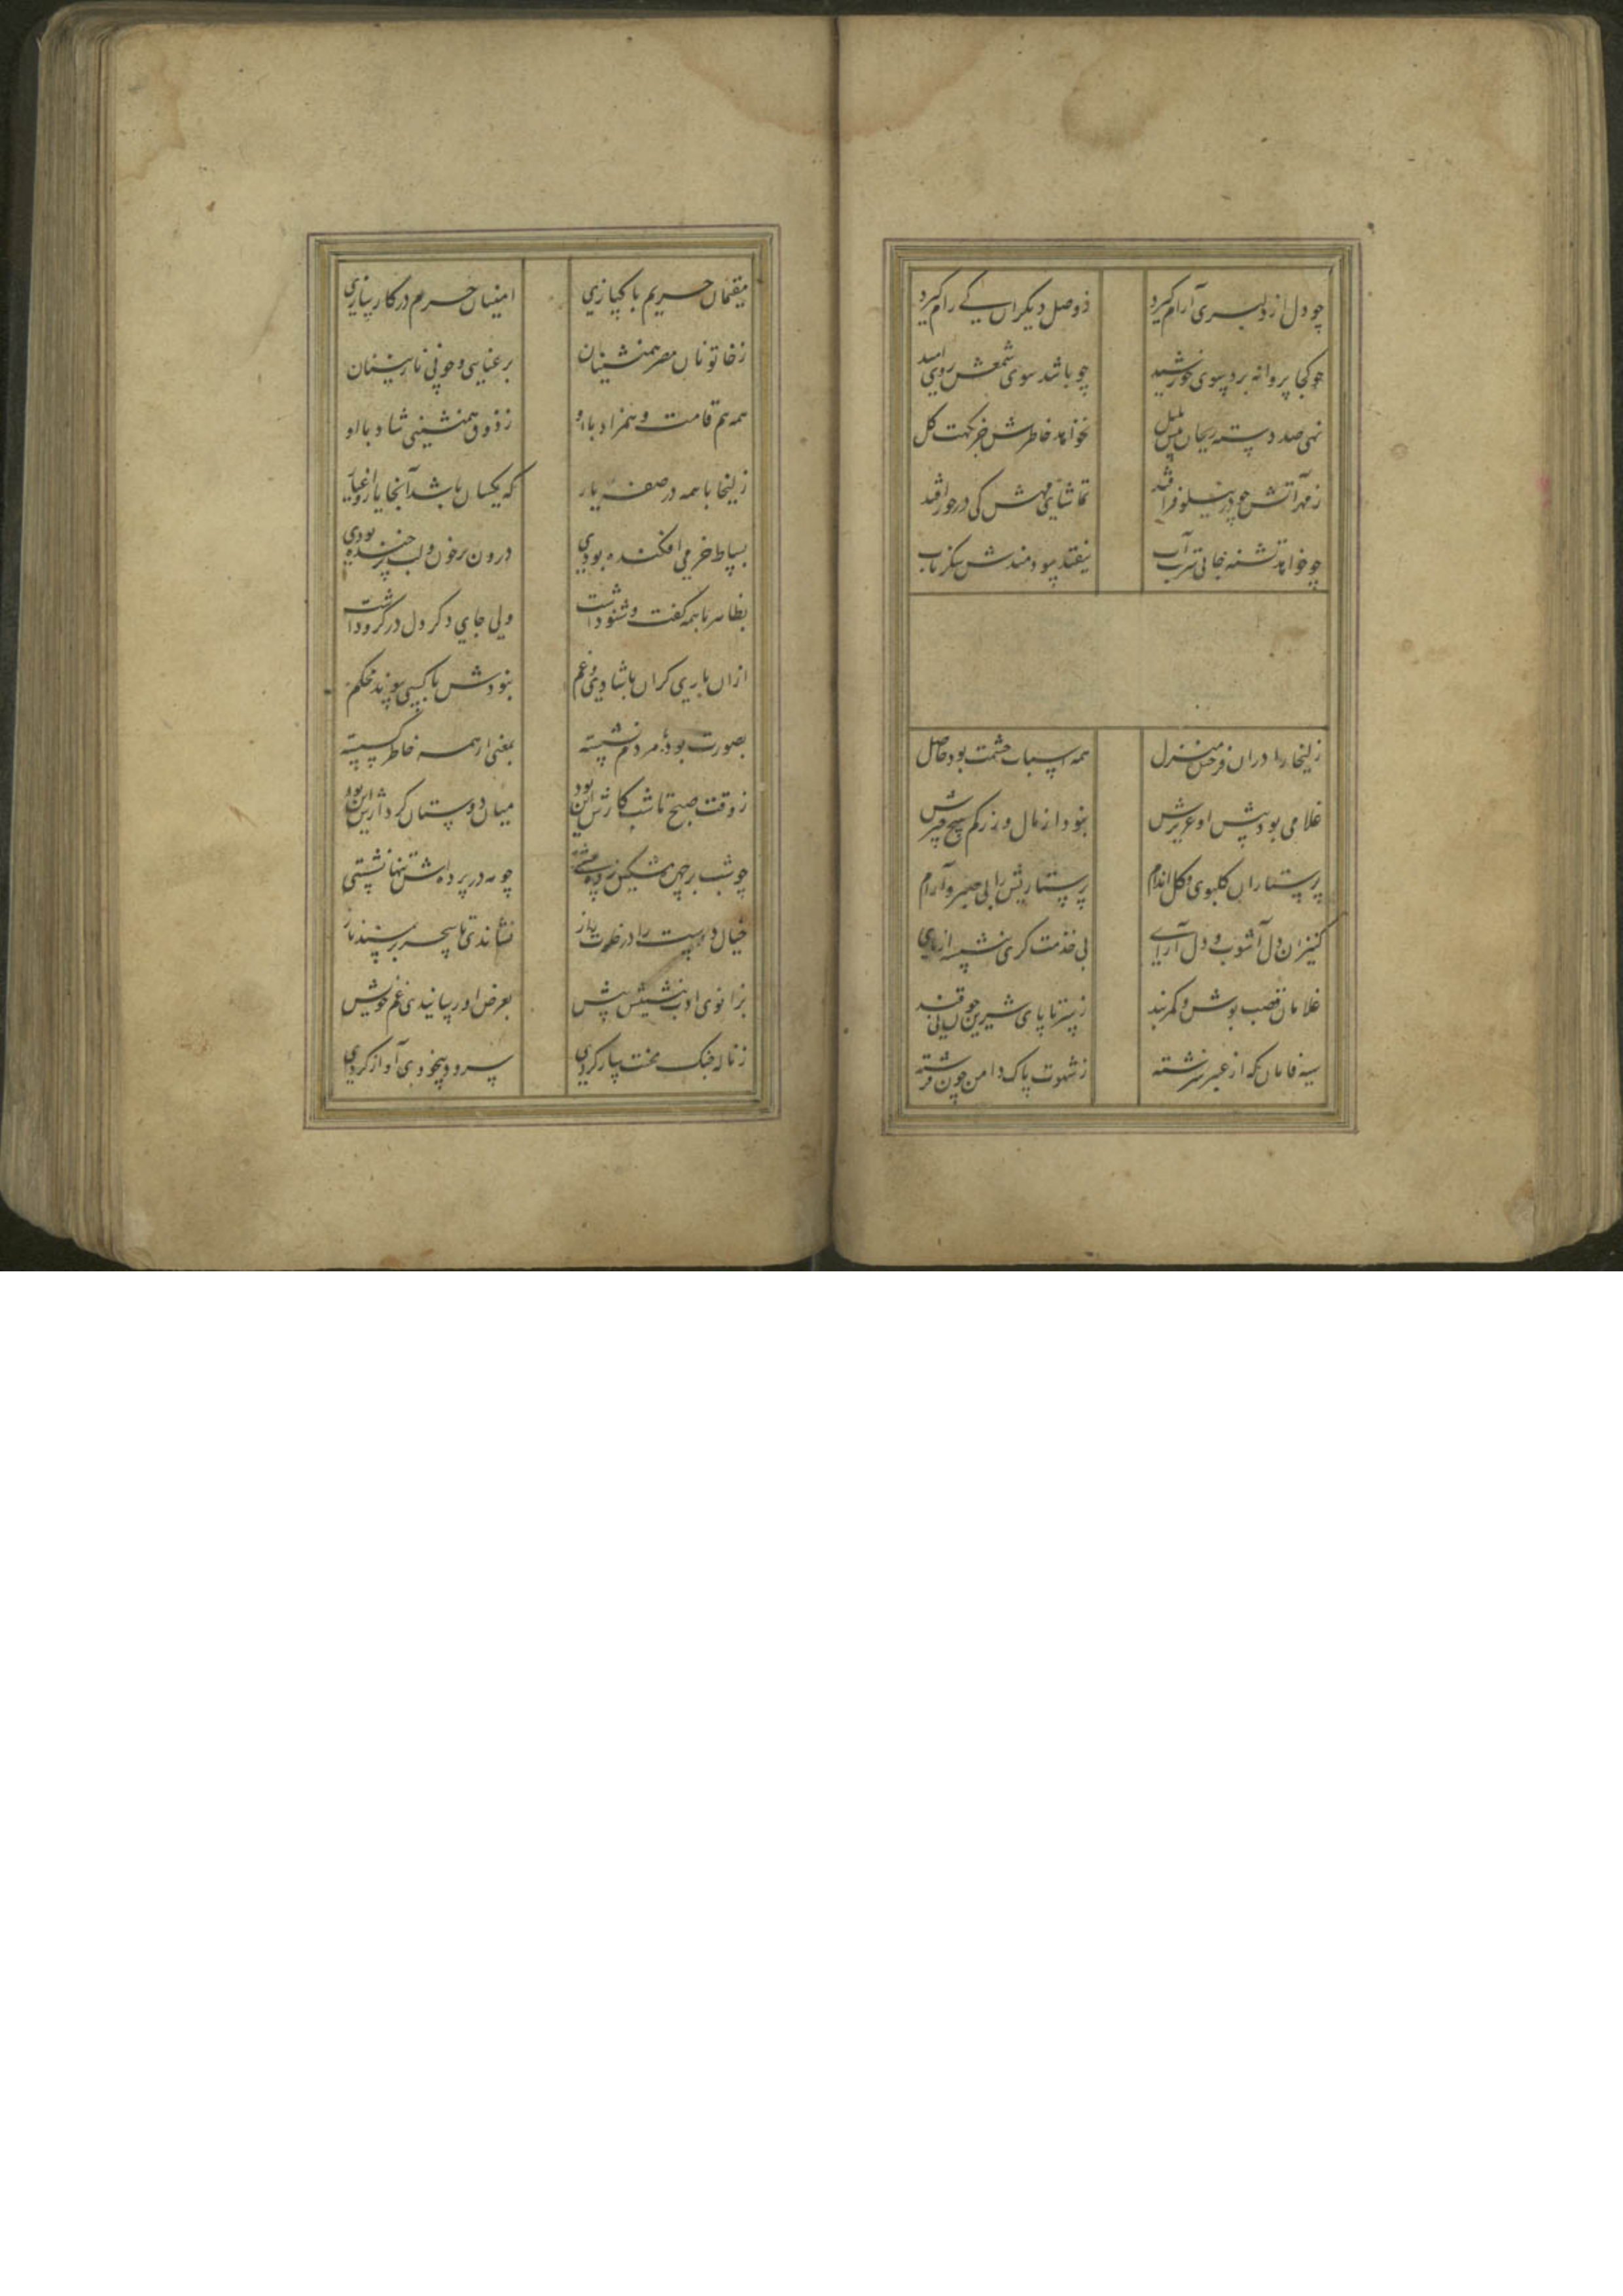 چو دل از دلبری آرام گیرد
ز وصل دیگران کی رام گیرد
کجا پروانه پرد سوی خورشید
چو باشد سوی شمعش روی امید
نهی صد دسته ریحان پیش بلبل
نخواهد خاطرش جز نکهت گل
ز مهر آتش چو در نیلوفر افتد
تماشای مهش کی در خور افتد
چو خواهد تشنه جانی شربت آب
نیفتد سودمندش شکر ناب
زلیخا را دران فرخنده منزل
همه اسباب حشمت بود حاصل
غلامی بود پیش او عزیزش
نبود از مال و زر کم هیچ چیزش
پرستاران گلبوی و گل اندام
پرستاریش را بی صبر و آرام
کنیزان دل آشوب و دل آرای
پی خدمت گری ننشسته از پای
غلامان قصب پوش و کمربند
ز سر تا پای شیرین چون نی قند
سیه فامان که از عنبر سرشته
ز شهوت پاک دامن چون فرشته
مقیمان حریم پاکبازی
امینان حرم در کارسازی
ز خاتونان مصر همنشینان
برعنایی و خوبی نازنینان
همه هم قامت و همزاد با او
ز ذوق همنشینی شاد با او
زلیخا با همه در صفه بار
که یکسان باشد آنجا یار و اغیار
بساط خرمی افکنده بودی
درون پر خون و لب پر خنده بودی
بظاهر با همه گفت و شنو داشت
ولی جای دگر دل در گرو داشت
ازان یاری گران با شادی و غم
نبودش با کسی پیوند محکم
بصورت بود با مردم نشسته
بمعنی از همه خاطر گسسته
ز وقت صبح تا شب کارش این بود
میان دوستان کردارش این بود
چو شب بر چهره مشکین پرده بستی
چو مه در پرده اش تنها نشستی
خیال دوست را در خلوت راز
نشاندی تا سحر بر مسند ناز
بزانوی ادب بنشستیش پیش
بعرض او رسانیدی غم خویش
ز ناله چنگ محنت ساز کردی
سرود بیخودی آواز کردی